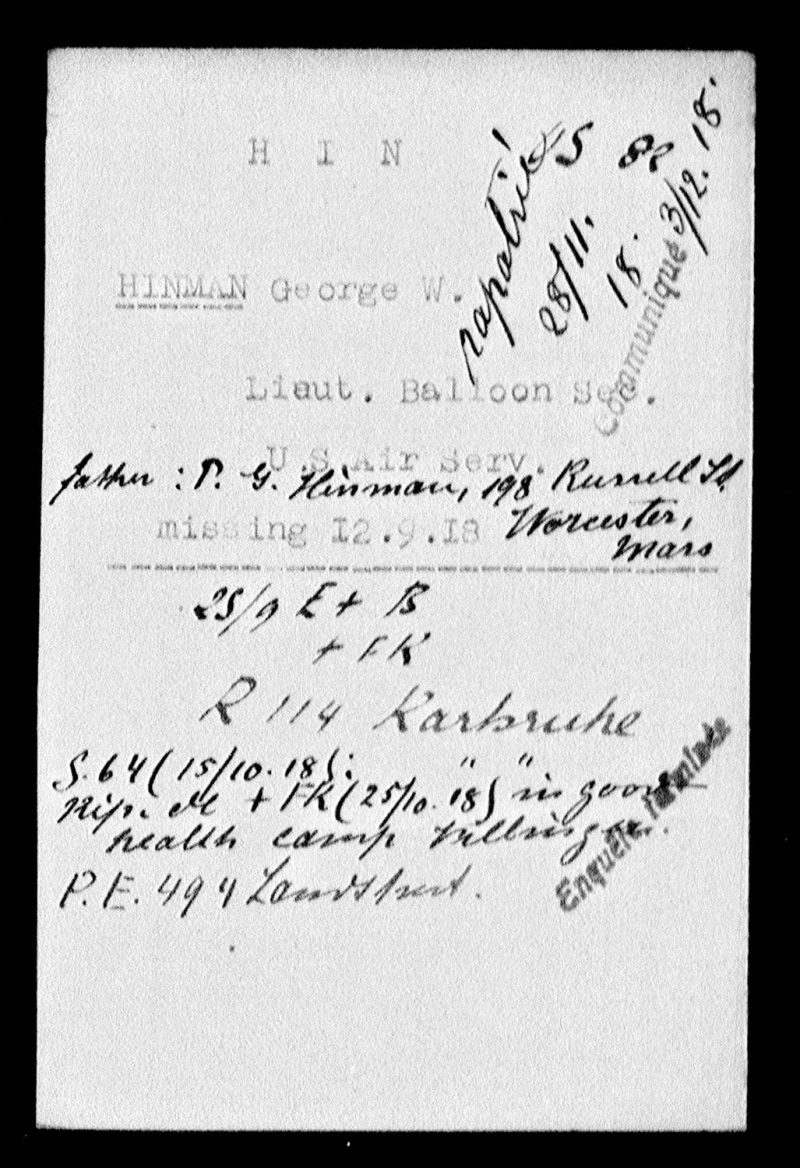 H I N
rapatrié
28/11.
18.
Communiqué 3/12. 18.
HINMAN George W.
Lieut. Balloon Sec.
U.S. Air Serv.
father : P. G. Hinman, 198 Russell St.
Worcester,
Mass
missing 12.9.18
25/9 E + B
+ FK
R 114 Karlsruhe
S. 64 (15/10. 18): " "
Rép. + FK (25/10. 18) in good
health camp Villingen.
P.E. 494 Landshut.
Enquête, terminée